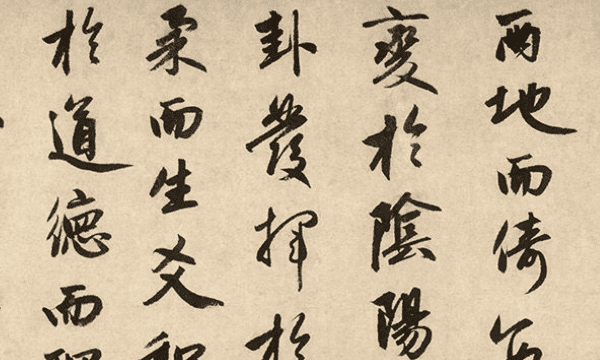 兩地而倚
變於陰陽
卦發揮於
柔而生爻和
於道德而理